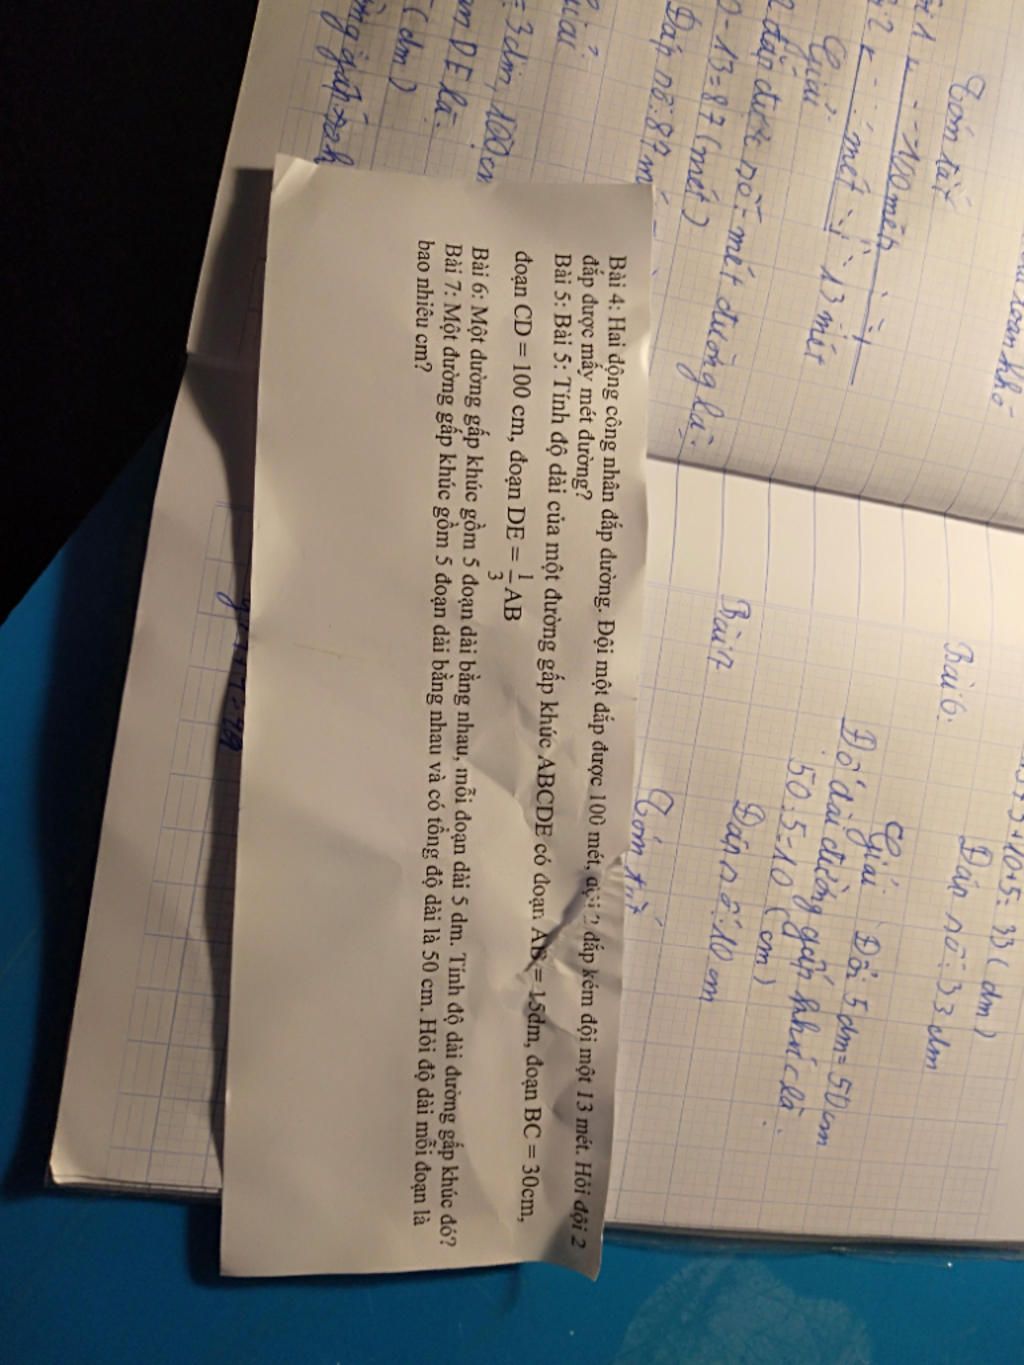 Tóm tắt
100 mét
mét
13 mét
Giải
đắp được số mét đường là:
- 13 = 87 (mét)
Đáp số: 87 m
= 3dm, 100 cm
DE là:
(dm)
Bài 4: Hai động công nhân đắp đường. Đội một đắp được 100 mét, đội 2 đắp kém đội một 13 mét. Hỏi đội 2
đắp được mấy mét đường?
Bài 5: Bài 5: Tính độ dài của một đường gấp khúc ABCDE có đoạn AB = 15dm, đoạn BC = 30cm,
đoạn CD = 100 cm, đoạn DE = 1/3 AB
Bài 6: Một đường gấp khúc gồm 5 đoạn dài bằng nhau, mỗi đoạn dài 5 dm. Tính độ dài đường gấp khúc đó?
Bài 7: Một đường gấp khúc gồm 5 đoạn dài bằng nhau và có tổng độ dài là 50 cm. Hỏi độ dài mỗi đoạn là
bao nhiêu cm?
+ 3 + 10 + 5 = 33 (dm)
Đáp số: 33 dm
Bài 6:
Giải Đổi 5 dm = 50 cm
Độ dài đường gấp khúc là:
50 : 5 = 10 (cm)
Đáp số: 10 cm
Bài 7
Tóm tắt